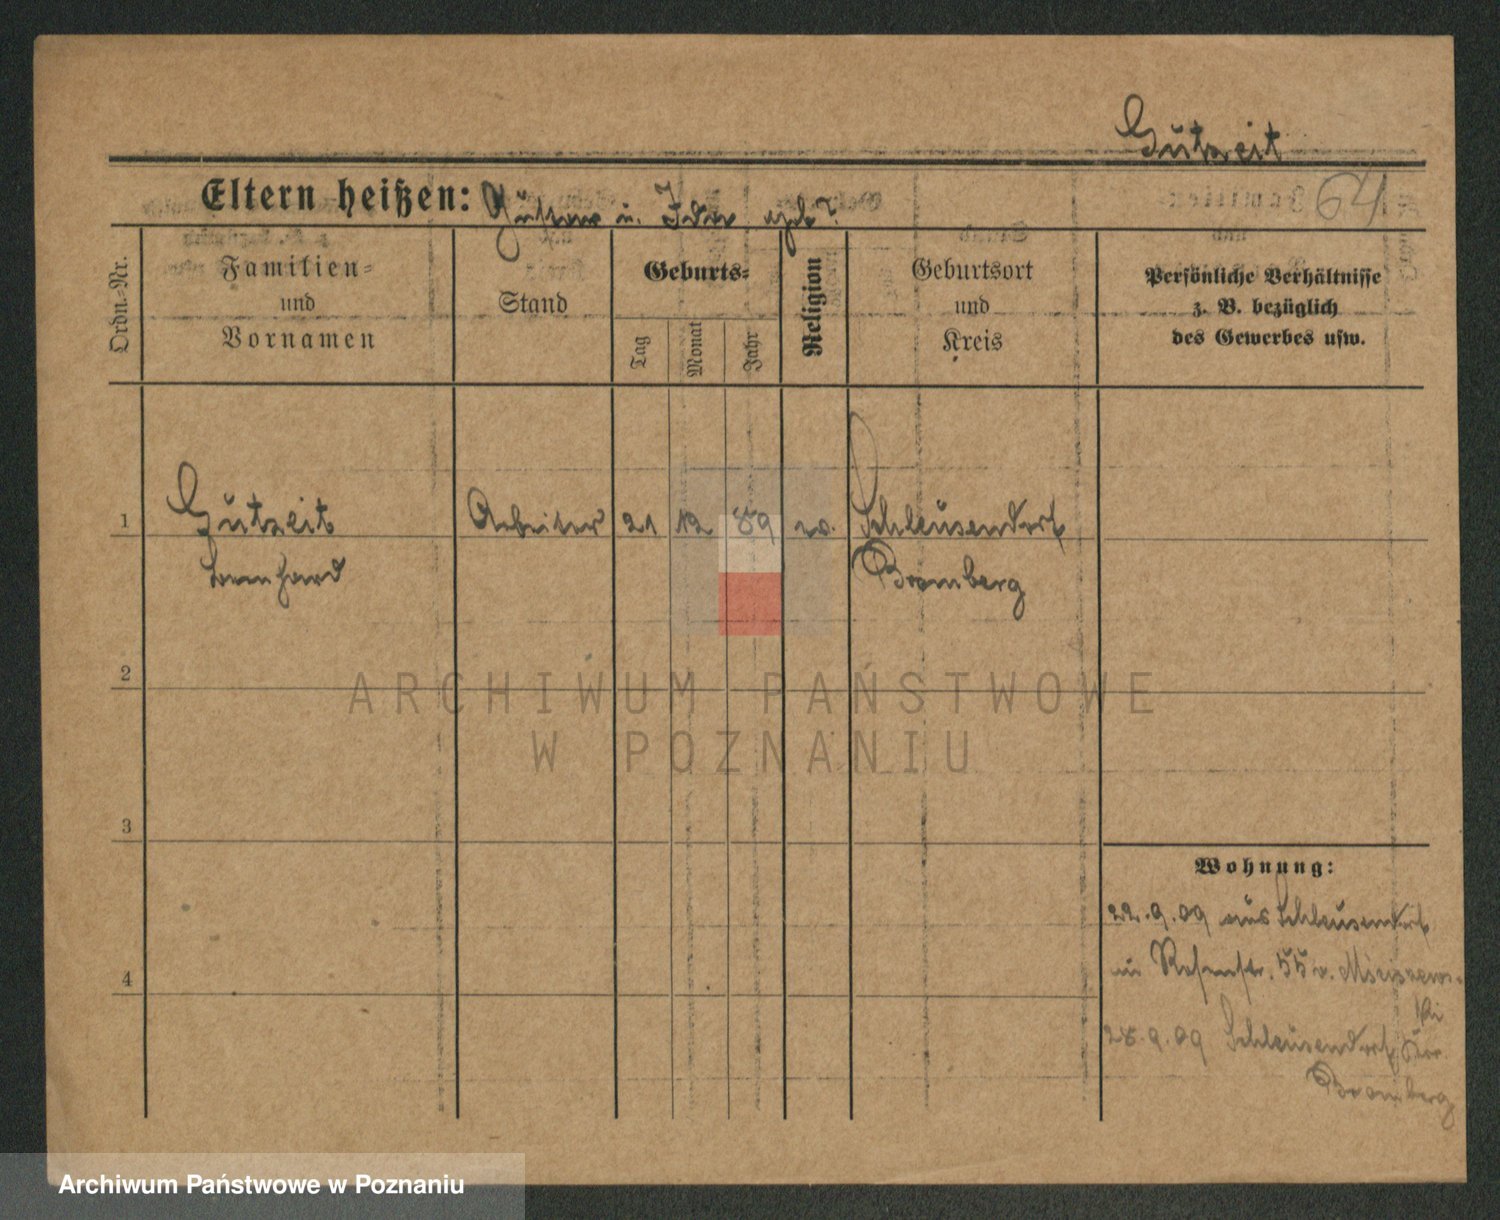 Gutzeit
64
Eltern heißen: Gustav u. Ida geb ?
Ordn.-Nr.
Familien=
und
Vornamen
Stand
Geburts=
Tag
Monat
Jahr
Religion
Geburtsort
und
Kreis
Persönliche Verhältnisse
z. B. bezüglich
des Gewerbes usw.
1
Gutzeit Arbeiter 21 12 89 ev. Schleusendorf
Bernhard Bromberg
2
3
4
Wohnung:
22.9.09 aus Schleusendorf
in Rosenstr. 55 v.
28.9.09 Schleusendorf Kr.
Bromberg
ARCHIWUM PAŃSTWOWE
W POZNANIU
Archiwum Państwowe w Poznaniu